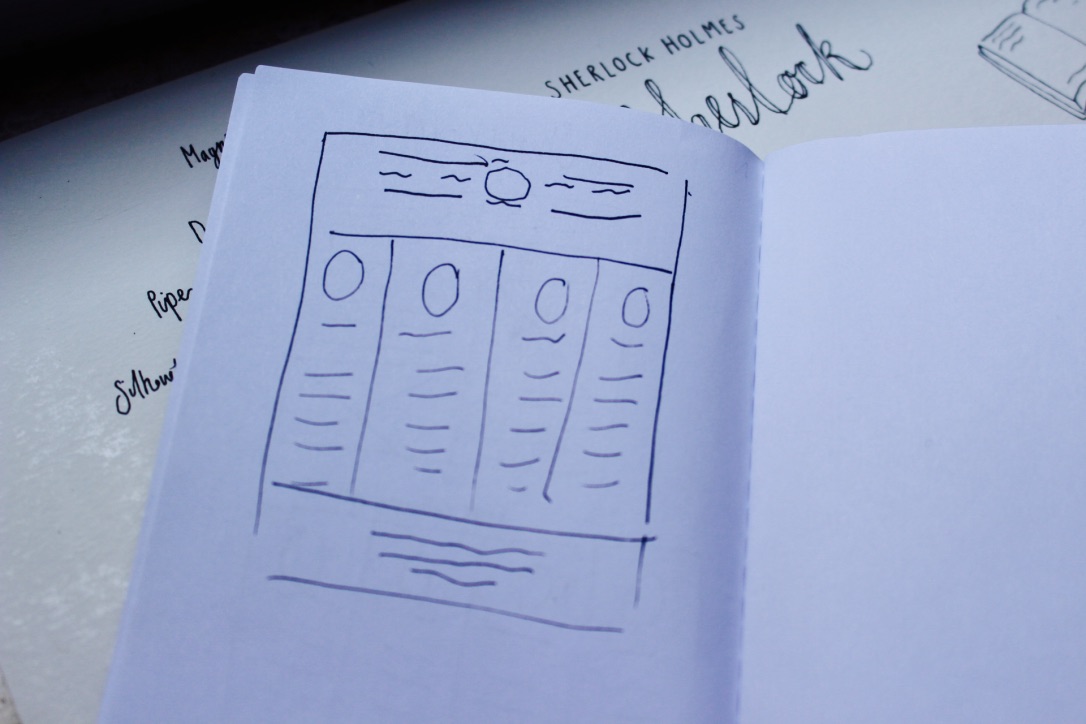 SHERLOCK HOLMES
Sherlock
Magn
D
Pipe
Silhou